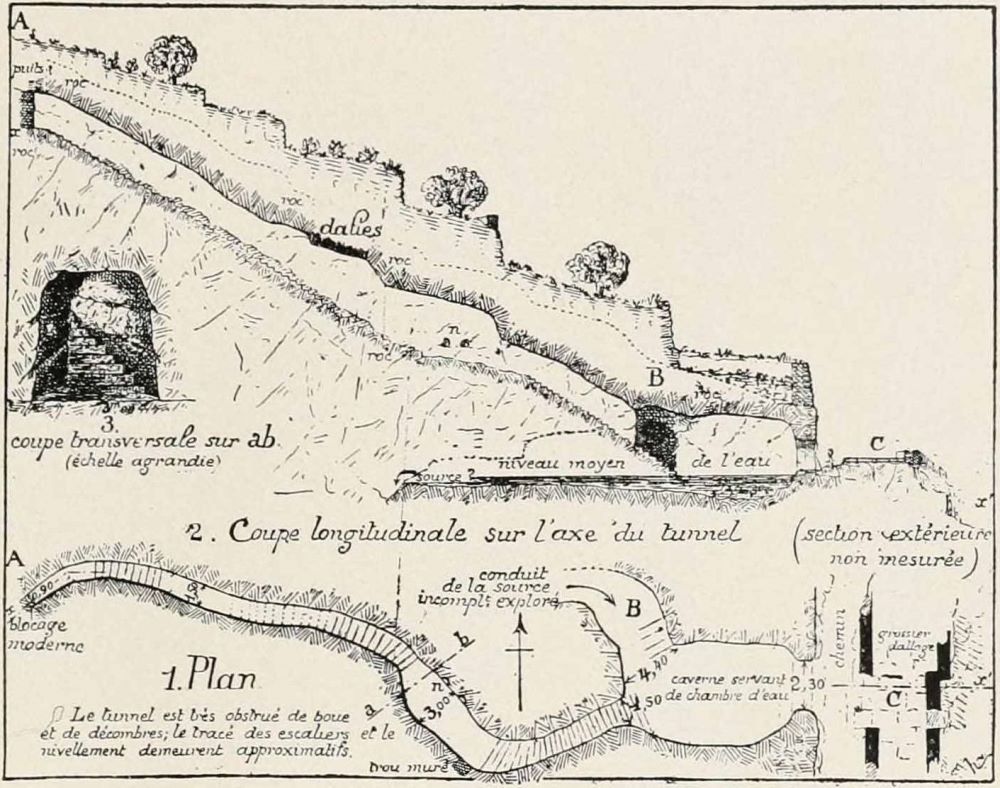 A
puits
roc
x
roc
roc
dalles
roc
n
roc
B
roc
3.
coupe transversale sur ab.
(échelle agrandie)
source ?
niveau moyen
de l'eau
C
x'
2. Coupe longitudinale sur l'axe du tunnel
(section extérieure
non mesurée)
A
0,90
blocage
moderne
conduit
de la source
incompl.t exploré
B
b
n
a
3,00
4,40
1,50
caverne servant
de chambre d'eau
2,30
chemin
grossier
dallage
C
x'
1. Plan
Le tunnel est très obstrué de boue
et de décombres; le tracé des escaliers et le
nivellement demeurent approximatifs.
trou muré